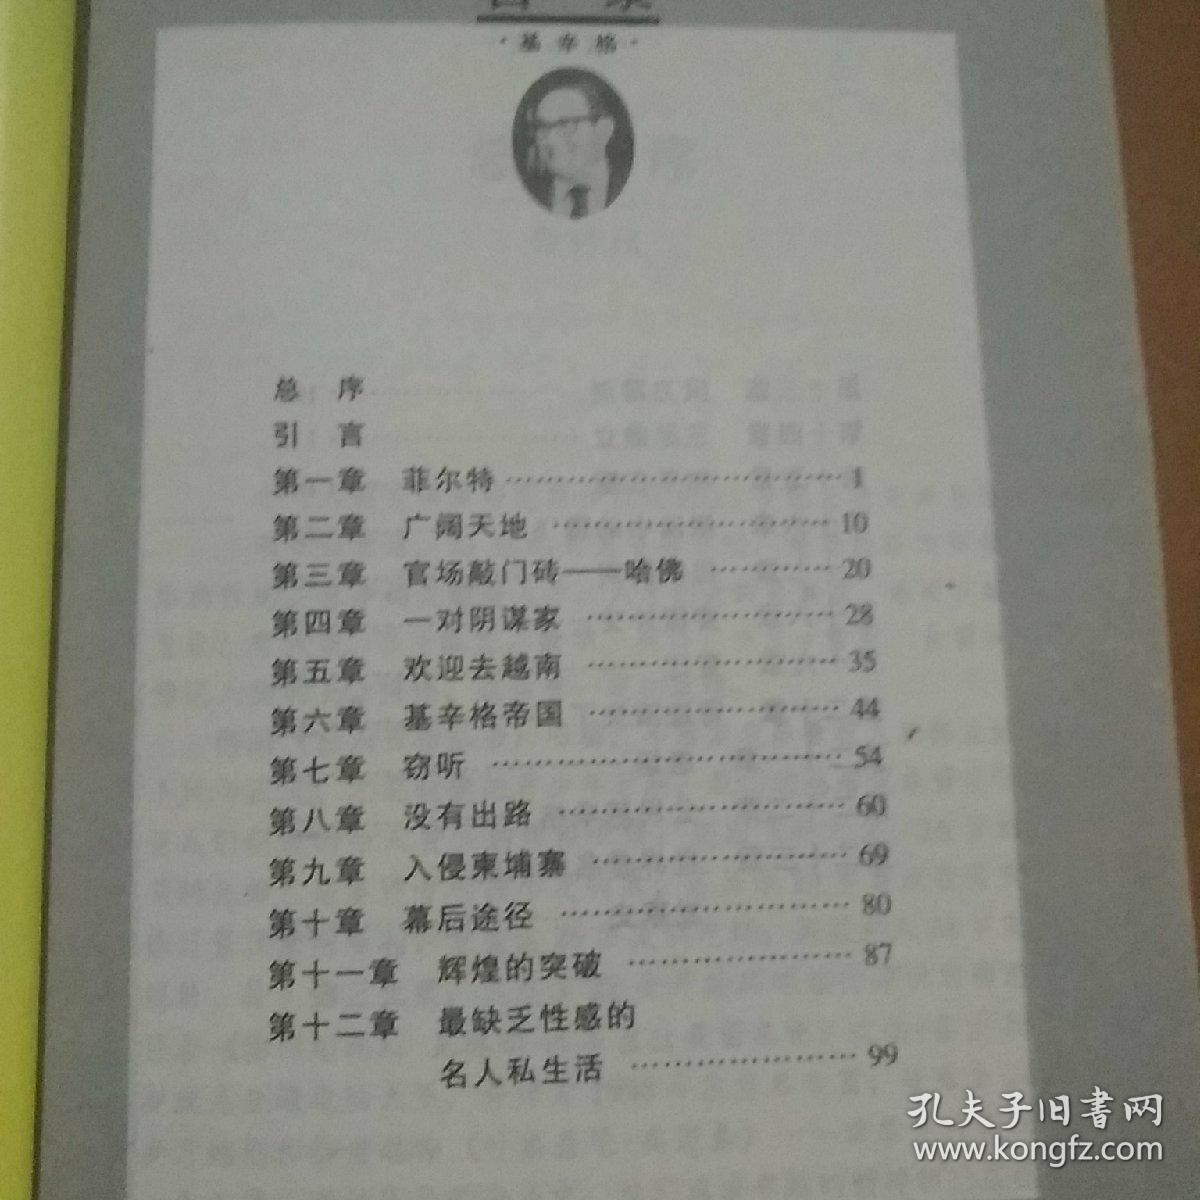 目 录
·基辛格·
总 序
引 言
第一章 菲尔特……………………………1
第二章 广阔天地………………………10
第三章 官场敲门砖——哈佛…………20
第四章 一对阴谋家……………………28
第五章 欢迎去越南……………………35
第六章 基辛格帝国……………………44
第七章 窃听……………………………54
第八章 没有出路………………………60
第九章 入侵柬埔寨……………………69
第十章 幕后途径………………………80
第十一章 辉煌的突破…………………87
第十二章 最缺乏性感的
名人私生活…………………99
孔夫子旧书网
www.kongfz.com